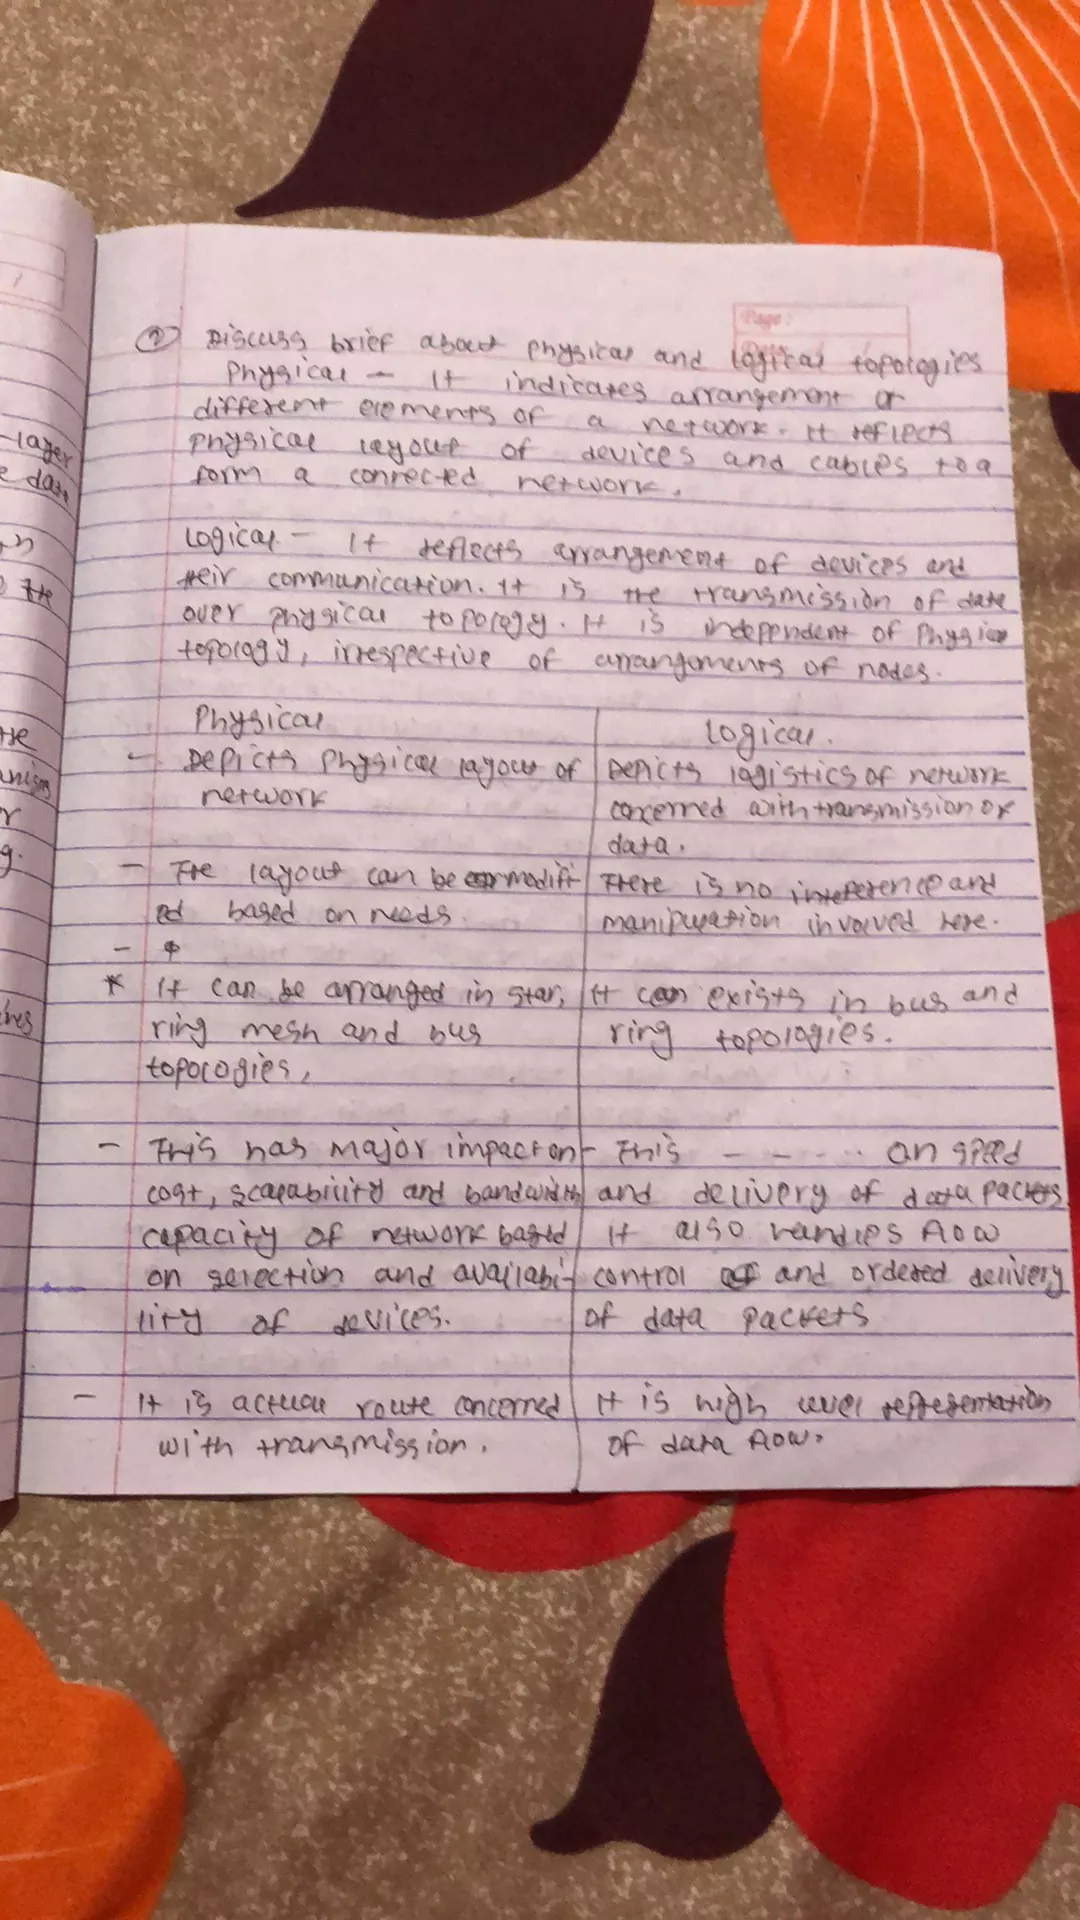 Page:
② Discuss brief about physical and logical topologies
Physical - It indicates arrangement or
different elements of a network. It reflects
physical layout of devices and cables to a
form a connected network.
Logical - It reflects arrangement of devices and
their communication. It is the transmission of data
over physical topology. It is independent of Physical
topology, irrespective of arrangements of nodes.
Physical
Logical.
- Depicts physical layout of
network
Depicts logistics of network
concerned with transmission of
data.
- The layout can be modifi
ed based on needs.
There is no inteference and
manipulation involved here.
-
* It can be arranged in star,
ring mesh and bus
topologies,
It can exists in bus and
ring topologies.
- This has major impact on
cost, scalability and bandwidth
capacity of network based
on selection and availabi-
lity of devices.
- This - - - .. on speed
and delivery of data packets
It also handles flow
control and ordered delivery
of data packets
- It is actual route concerned
with transmission.
It is high level representation
of data flow.
-layer
e data
the
the
r
g.